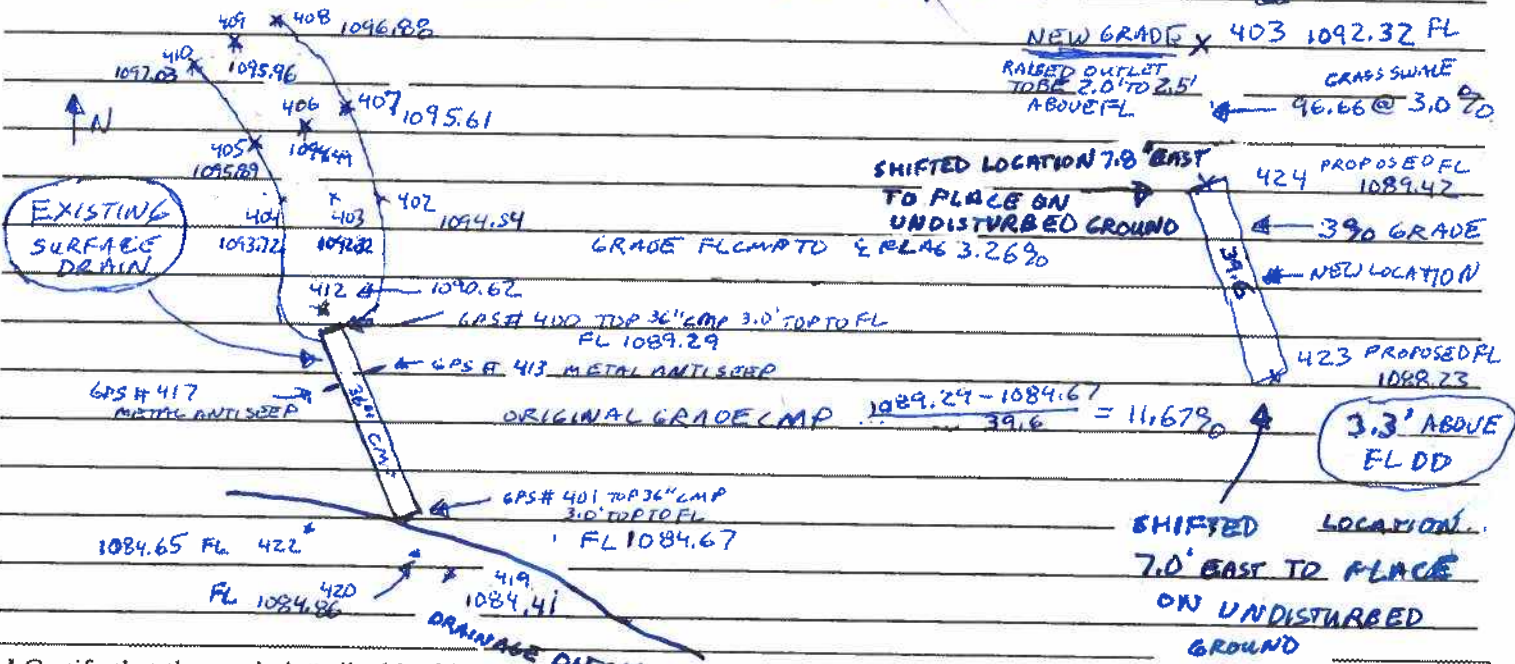 409 408 1096.88
410 1095.96
1097.03
N
406 407 1095.61
405
1095.89
404 403 402
1093.72 1092.32 1094.54
EXISTING
SURFACE
DRAIN
GRADE FL CMP TO ℄ FLAG 3.26%
412 1090.62
GPS# 400 TOP 36" CMP 3.0' TOP TO FL
FL 1089.29
GPS # 413 METAL ANTI SEEP
GPS # 417
METAL ANTI SEEP
36" CMP
ORIGINAL GRADE CMP 1089.29 - 1084.67
39.6
= 11.67%
GPS# 401 TOP 36" CMP
3.0' TOP TO FL
FL 1084.67
1084.65 FL 422
420 419
FL 1084.86 1084.41
DRAINAGE
NEW GRADE X 403 1092.32 FL
RAISED OUTLET
TO BE 2.0' TO 2.5'
ABOVE FL
GRASS SWALE
96.66 @ 3.0%
SHIFTED LOCATION 7.8' EAST
TO PLACE ON
UNDISTURBED GROUND
424 PROPOSED FL
1089.42
3% GRADE
39.6
NEW LOCATION
423 PROPOSED FL
1088.23
3.3' ABOVE
FL DD
SHIFTED LOCATION
7.0' EAST TO PLACE
ON UNDISTURBED
GROUND